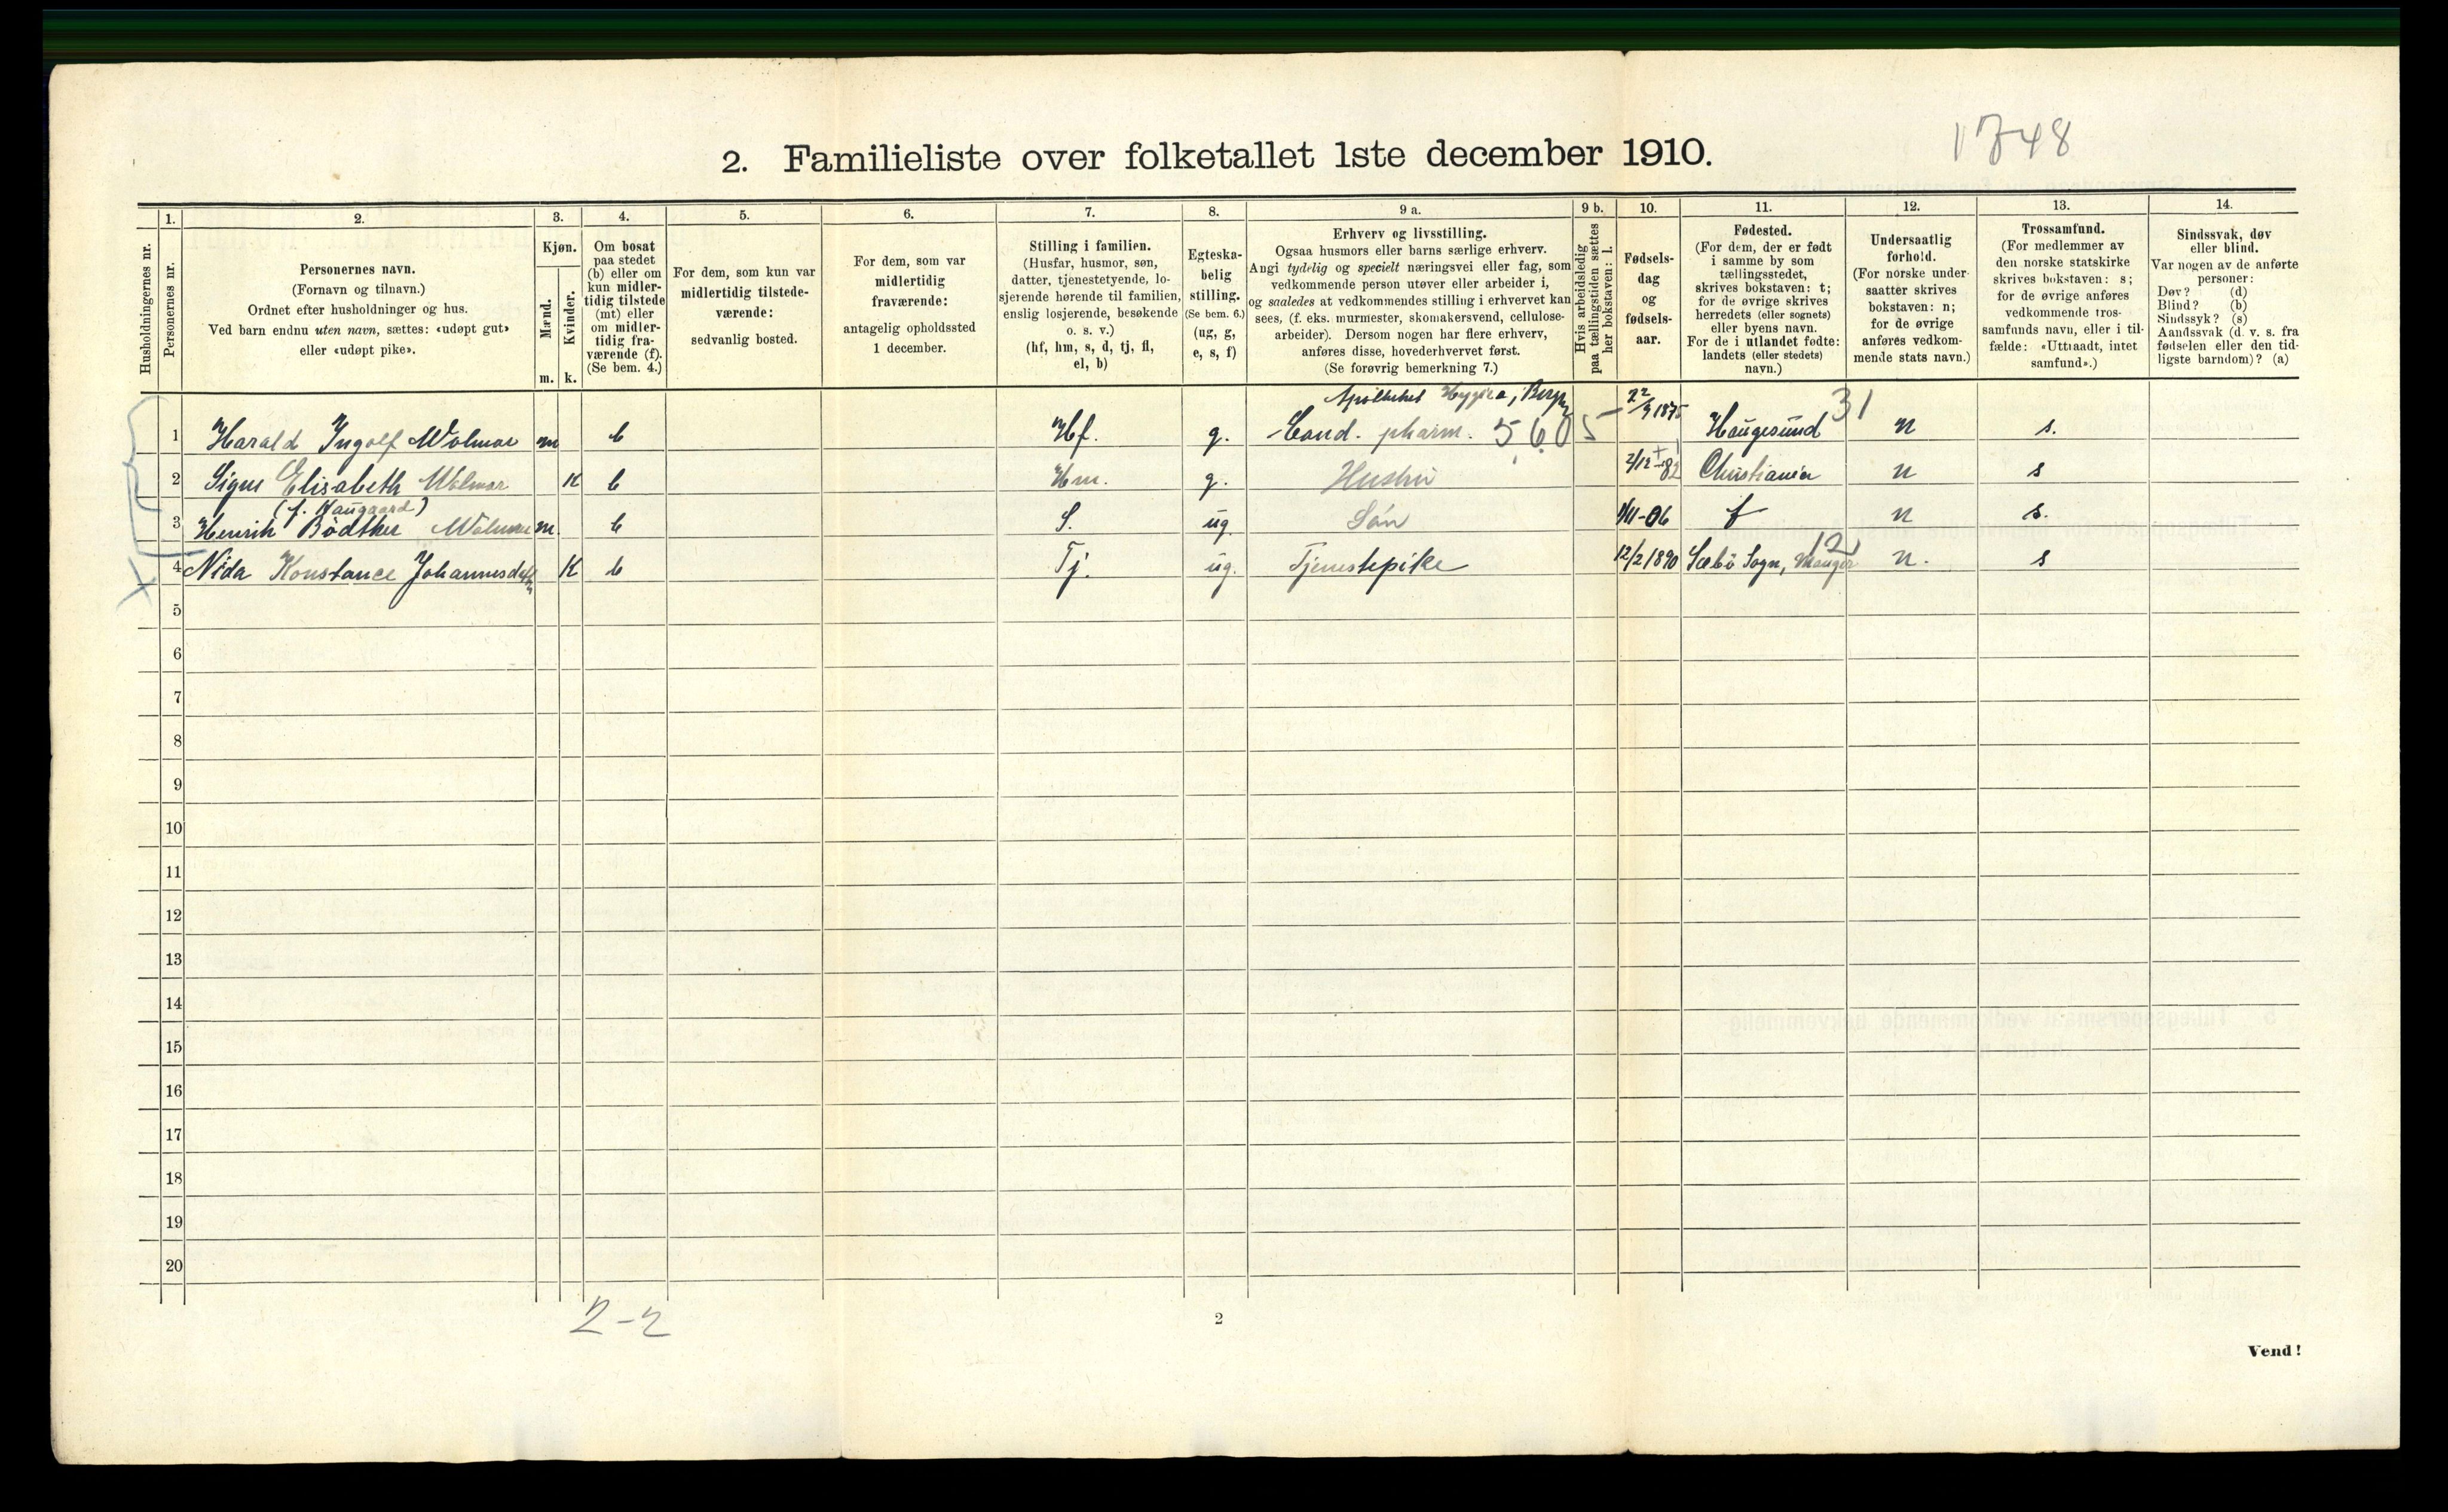 1748
2. Familieliste over folketallet 1ste december 1910.
Husholdningernes nr.
1.
Personernes nr.
2.
Personernes navn.
(Fornavn og tilnavn.)
Ordnet efter husholdninger og hus.
Ved barn endnu uten navn, sættes: «udøpt gut»
eller «udøpt pike».
3.
Kjøn.
Mænd.
Kvinder.
m. k.
4.
Om bosat
paa stedet
(b) eller om
kun midler-
tidig tilstede
(mt) eller
om midler-
tidig fra-
værende (f).
(Se bem. 4.)
5.
For dem, som kun var
midlertidig tilstede-
værende:
sedvanlig bosted.
6.
For dem, som var
midlertidig
fraværende:
antagelig opholdssted
1 december.
7.
Stilling i familien.
(Husfar, husmor, søn,
datter, tjenestetyende, lo-
sjerende hørende til familien,
enslig losjerende, besøkende
o. s. v.)
(hf, hm, s, d, tj, fl,
el, b)
8.
Egteska-
belig
stilling.
(Se bem. 6.)
(ug, g,
e, s, f)
9 a.
Erhverv og livsstilling.
Ogsaa husmors eller barns særlige erhverv.
Angi tydelig og specielt næringsvei eller fag, som
vedkommende person utøver eller arbeider i,
og saaledes at vedkommendes stilling i erhvervet kan
sees, (f. eks. murmester, skomakersvend, cellulose-
arbeider). Dersom nogen har flere erhverv,
anføres disse, hovederhvervet først.
(Se forøvrig bemerkning 7.)
9 b.
Hvis arbeidsledig
paa tællingstiden sættes
her bokstaven: l.
10.
Fødsels-
dag
og
fødsels-
aar.
11.
Fødested.
(For dem, der er født
i samme by som
tællingsstedet,
skrives bokstaven: t;
for de øvrige skrives
herredets (eller sognets)
eller byens navn.
For de i utlandet fødte:
landets (eller stedets)
navn.)
12.
Undersaatlig
forhold.
(For norske under-
saatter skrives
bokstaven: n;
for de øvrige
anføres vedkom-
mende stats navn.)
13.
Trossamfund.
(For medlemmer av
den norske statskirke
skrives bokstaven: s;
for de øvrige anføres
vedkommende tros-
samfunds navn, eller i til-
fælde: «Uttraadt, intet
samfund».)
14.
Sindssvak, døv
eller blind.
Var nogen av de anførte
personer:
Døv? (d)
Blind? (b)
Sindssyk? (s)
Aandssvak (d. v. s. fra
fødselen eller den tid-
ligste barndom)? (a)
Apotheket Hygiea, Bergen
1 Harald Ingolf Wolmar m b Hf. g. Cand. pharm. 5605 22/9 1875 Haugesund 31 n s.
2 Signe Elisabeth Wolmar K b Hm. g. Hustru 2/12-82 Christiania n s
(f. Haugaard)
3 Henrik Bödtker Wolmar m. b S. ug Sön 1/11-06 t n s.
4 Nida Konstance Johannesdatter K b Tj. ug. Tjenestepike 12/2 1890 Sæbö Sogn, Manger 12 n. s
5
6
7
8
9
10
11
12
13
14
15
16
17
18
19
20
2-2
2
Vend!